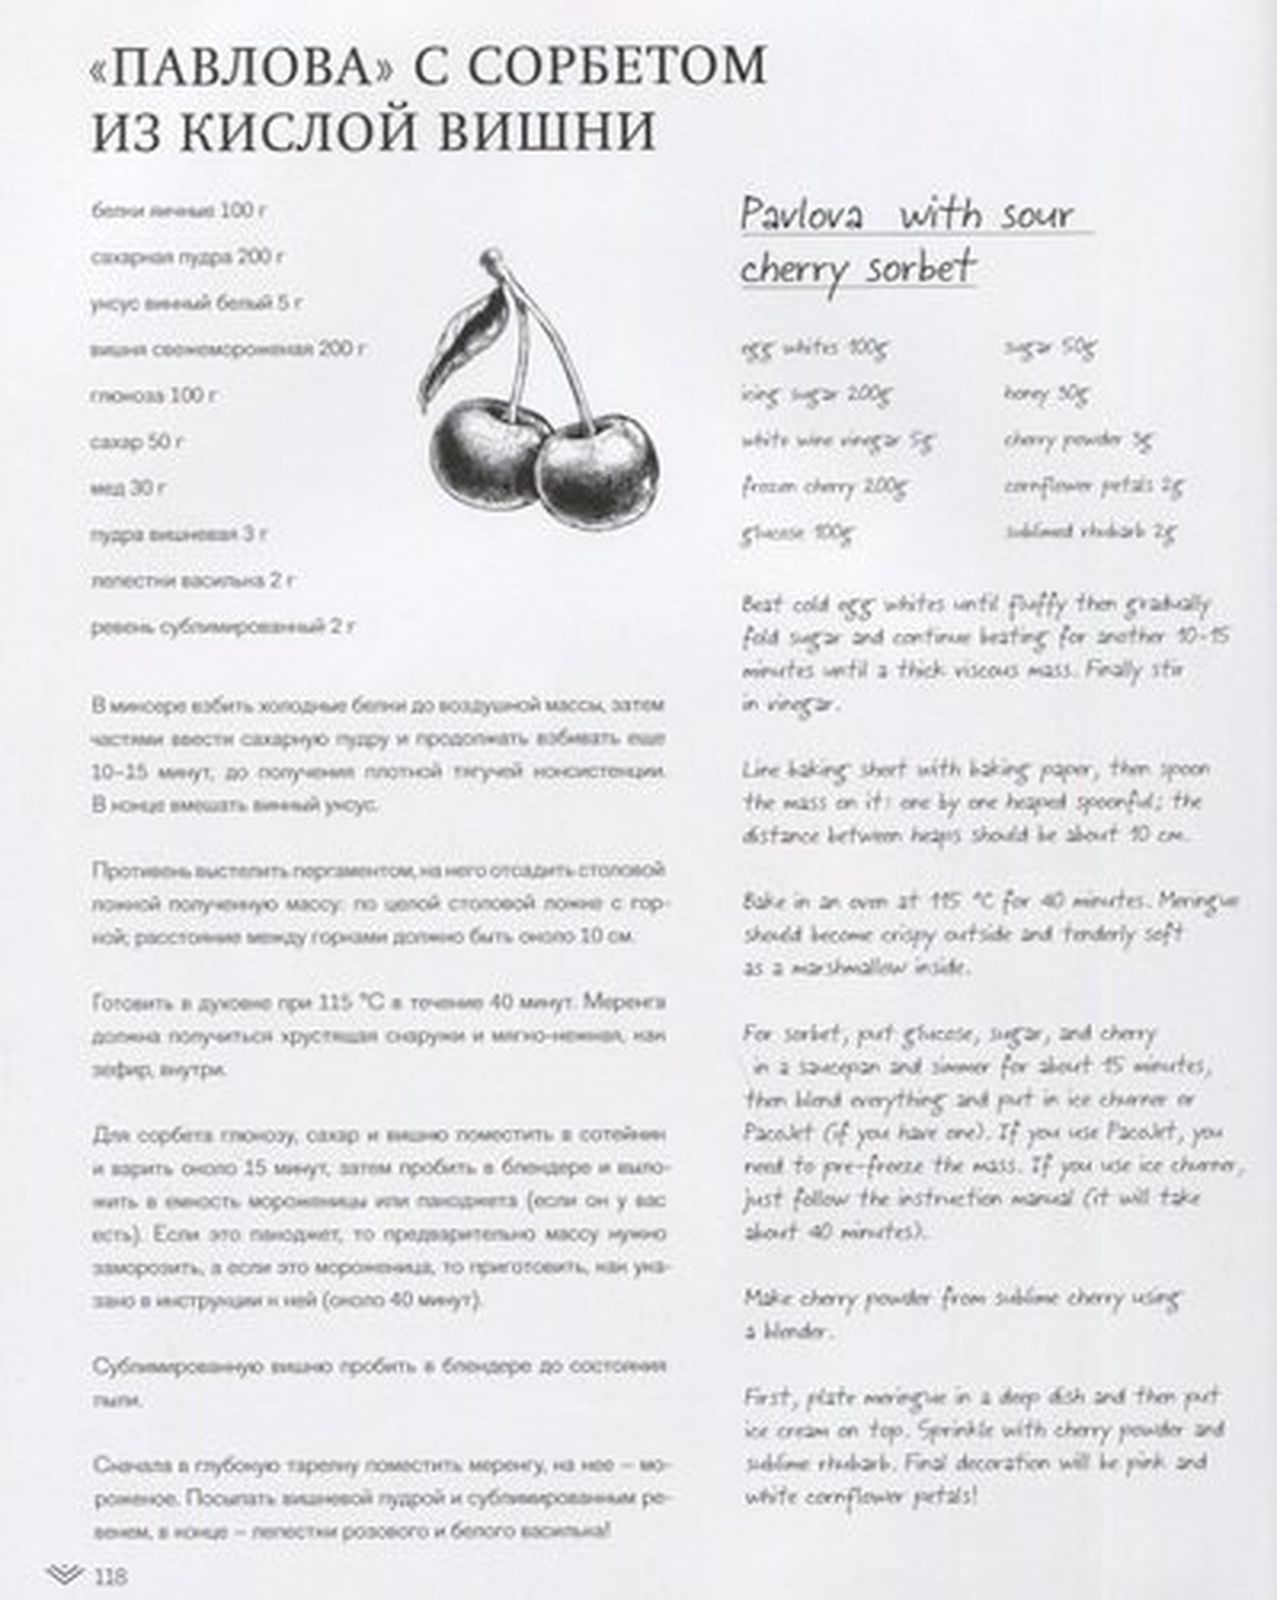 «ПАВЛОВА» С СОРБЕТОМ
ИЗ КИСЛОЙ ВИШНИ
белки яичные 100 г
сахарная пудра 200 г
уксус винный белый 5 г
вишня свежемороженая 200 г
глюкоза 100 г
сахар 50 г
мед 30 г
пудра вишневая 3 г
лепестки василька 2 г
ревень сублимированный 2 г
В миксере взбить холодные белки до воздушной массы, затем
частями ввести сахарную пудру и продолжать взбивать еще
10–15 минут, до получения плотной тягучей консистенции.
В конце вмешать винный уксус.
Противень выстелить пергаментом, на него отсадить столовой
ложкой полученную массу: по целой столовой ложке с гор-
кой; расстояние между горками должно быть около 10 см.
Готовить в духовке при 115 °C в течение 40 минут. Меренга
должна получиться хрустящая снаружи и мягко-нежная, как
зефир, внутри.
Для сорбета глюкозу, сахар и вишню поместить в сотейник
и варить около 15 минут, затем пробить в блендере и выло-
жить в емкость мороженицы или пакоджета (если он у вас
есть). Если это пакоджет, то предварительно массу нужно
заморозить, а если это мороженица, то приготовить, как ука-
зано в инструкции к ней (около 40 минут).
Сублимированную вишню пробить в блендере до состояния
пыли.
Сначала в глубокую тарелку поместить меренгу, на нее – мо-
роженое. Посыпать вишневой пудрой и сублимированным ре-
венем, в конце – лепестки розового и белого василька!
118
Pavlova with sour
cherry sorbet
egg whites 100g
icing sugar 200g
white wine vinegar 5g
frozen cherry 200g
glucose 100g
sugar 50g
honey 30g
cherry powder 3g
cornflower petals 2g
sublimed rhubarb 2g
Beat cold egg whites until fluffy then gradually
fold sugar and continue beating for another 10-15
minutes until a thick viscous mass. Finally stir
in vinegar.
Line baking sheet with baking paper, then spoon
the mass on it: one by one heaped spoonful; the
distance between heaps should be about 10 cm.
Bake in an oven at 115 °C for 40 minutes. Meringue
should become crispy outside and tenderly soft
as a marshmallow inside.
For sorbet, put glucose, sugar, and cherry
in a saucepan and simmer for about 15 minutes,
then blend everything and put in ice churner or
PacoJet (if you have one). If you use PacoJet, you
need to pre-freeze the mass. If you use ice churner,
just follow the instruction manual (it will take
about 40 minutes).
Make cherry powder from sublime cherry using
a blender.
First, plate meringue in a deep dish and then put
ice cream on top. Sprinkle with cherry powder and
sublime rhubarb. Final decoration will be pink and
white cornflower petals!